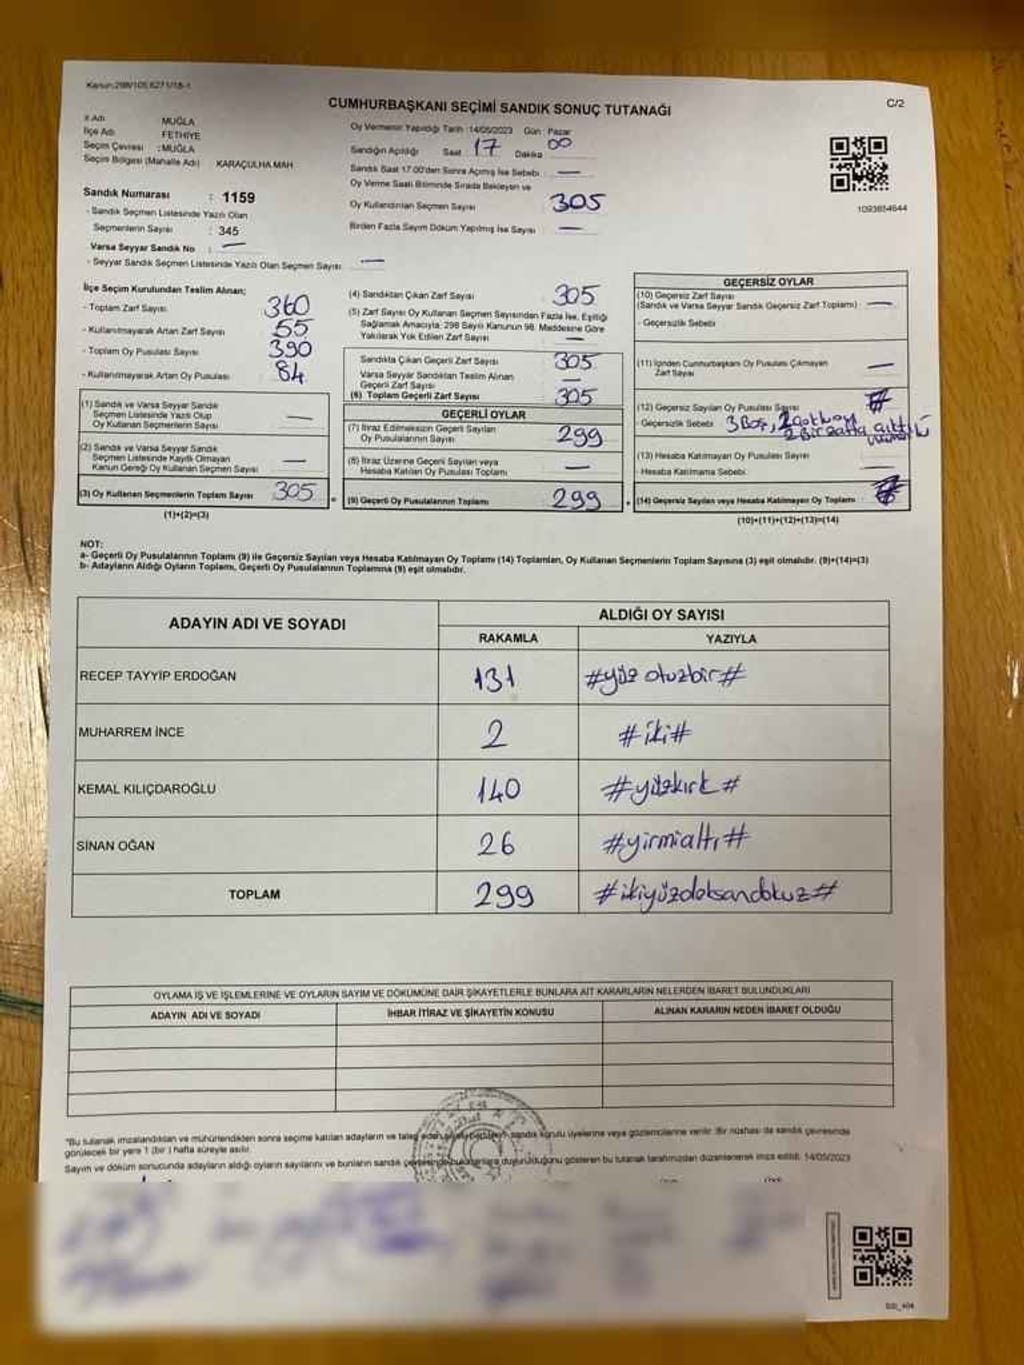 Kanun:298/105,6271/18-1
CUMHURBAŞKANI SEÇİMİ SANDIK SONUÇ TUTANAĞI
C/2
İl Adı MUĞLA
İlçe Adı FETHİYE
Seçim Çevresi : MUĞLA
Seçim Bölgesi (Mahalle Adı) KARAÇULHA MAH
Sandık Numarası : 1159
- Sandık Seçmen Listesinde Yazılı Olan
Seçmenlerin Sayısı : 345
Varsa Seyyar Sandık No : —
- Seyyar Sandık Seçmen Listesinde Yazılı Olan Seçmen Sayısı —
Oy Vermenin Yapıldığı Tarih :14/05/2023 Gün : Pazar
Sandığın Açıldığı Saat 17 Dakika 00
Sandık Saat 17.00'den Sonra Açılmış İse Sebebi : —
Oy Verme Saati Bitiminde Sırada Bekleyen ve
Oy Kullandırılan Seçmen Sayısı 305
Birden Fazla Sayım Döküm Yapılmış İse Sayısı —
1093654644
İlçe Seçim Kurulundan Teslim Alınan;
- Toplam Zarf Sayısı 360
- Kullanılmayarak Artan Zarf Sayısı 55
- Toplam Oy Pusulası Sayısı 390
- Kullanılmayarak Artan Oy Pusulası 84
(1) Sandık ve Varsa Seyyar Sandık
Seçmen Listesinde Yazılı Olup
Oy Kullanan Seçmenlerin Sayısı —
(2) Sandık ve Varsa Seyyar Sandık
Seçmen Listesinde Kayıtlı Olmayan
Kanun Gereği Oy Kullanan Seçmen Sayısı —
(3) Oy Kullanan Seçmenlerin Toplam Sayısı 305
(1)+(2)=(3)
(4) Sandıktan Çıkan Zarf Sayısı 305
(5) Zarf Sayısı Oy Kullanan Seçmen Sayısından Fazla İse, Eşitliği
Sağlamak Amacıyla; 298 Sayılı Kanunun 98. Maddesine Göre
Yakılarak Yok Edilen Zarf Sayısı —
Sandıkta Çıkan Geçerli Zarf Sayısı 305
Varsa Seyyar Sandıktan Teslim Alınan
Geçerli Zarf Sayısı —
(6) Toplam Geçerli Zarf Sayısı 305
GEÇERLİ OYLAR
(7) İtiraz Edilmeksizin Geçerli Sayılan
Oy Pusulalarının Sayısı 299
(8) İtiraz Üzerine Geçerli Sayılan veya
Hesaba Katılan Oy Pusulası Toplamı —
(9) Geçerli Oy Pusulalarının Toplamı 299
GEÇERSİZ OYLAR
(10) Geçersiz Zarf Sayısı
(Sandık ve Varsa Seyyar Sandık Geçersiz Zarf Toplamı) —
- Geçersizlik Sebebi
(11) İçinden Cumhurbaşkanı Oy Pusulası Çıkmayan
Zarf Sayısı —
(12) Geçersiz Sayılan Oy Pusulası Sayısı
- Geçersizlik Sebebi 3 Boş,
(13) Hesaba Katılmayan Oy Pusulası Sayısı
- Hesaba Katılmama Sebebi —
(14) Geçersiz Sayılan veya Hesaba Katılmayan Oy Toplamı :
(10)+(11)+(12)+(13)=(14)
NOT:
a- Geçerli Oy Pusulalarının Toplamı (9) ile Geçersiz Sayılan veya Hesaba Katılmayan Oy Toplamı (14) Toplamları, Oy Kullanan Seçmenlerin Toplam Sayısına (3) eşit olmalıdır. (9)+(14)=(3)
b- Adayların Aldığı Oyların Toplamı, Geçerli Oy Pusulalarının Toplamına (9) eşit olmalıdır.
ADAYIN ADI VE SOYADI
ALDIĞI OY SAYISI
RAKAMLA YAZIYLA
RECEP TAYYİP ERDOĞAN 131 #yüz otuzbir#
MUHARREM İNCE 2 #iki#
KEMAL KILIÇDAROĞLU 140 #yüzkırk#
SİNAN OĞAN 26 #yirmialtı#
TOPLAM 299 #ikiyüzdoksandokuz#
OYLAMA İŞ VE İŞLEMLERİNE VE OYLARIN SAYIM VE DÖKÜMÜNE DAİR ŞİKAYETLERLE BUNLARA AİT KARARLARIN NELERDEN İBARET BULUNDUKLARI
ADAYIN ADI VE SOYADI İHBAR İTİRAZ VE ŞİKAYETİN KONUSU ALINAN KARARIN NEDEN İBARET OLDUĞU
"Bu tutanak imzalandıktan ve mühürlendikten sonra seçime katılan adayların ve talep eden sandık kurulu üyelerine veya gözlemcilerine verilir. Bir nüshası da sandık çevresinde
görülecek bir yere 1 (bir) hafta süreyle asılır.
Sayım ve döküm sonucunda adayların aldığı oyların sayılarını ve bunların sandık çevresinde bulunanlara duyurulduğunu gösteren bu tutanak tarafımızdan düzenlenerek imza edildi. 14/05/2023